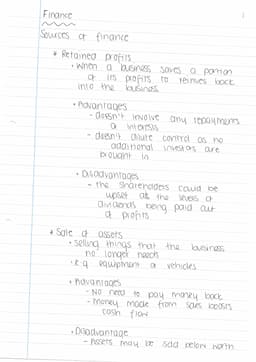 Finance
Sources of finance
* Retained profits
• When a business saves a portion
of its profits to reinves back
into the business
• Advantages
- doesn't involve any repayments
or interests
- doesn't dilute control as no
additional investors are
brought in
• Disadvantages
- the shareholders could be
upset at the levels of
dividends being paid out
of profits
* Sale of assets
• selling things that the business
no longer needs
• e.g equiptment or vehicles
• Advantages
- No need to pay money back
- Money made from sales boosts
cash flow
• Disadvantage
- Assets may be sold below worth